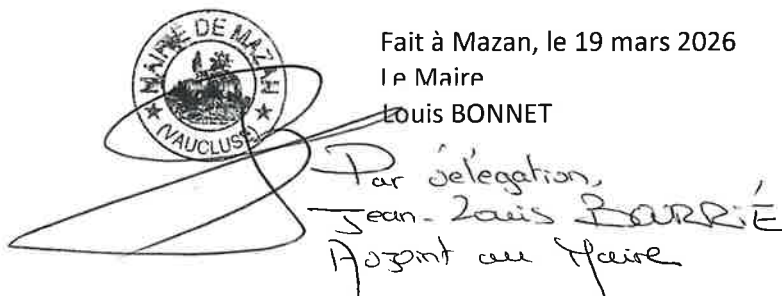 MAIRIE DE MAZAN
(VAUCLUSE)
Fait à Mazan, le 19 mars 2026
Le Maire
Louis BONNET
Par délégation,
Jean-Louis BOURRIÉ
Adjoint au Maire